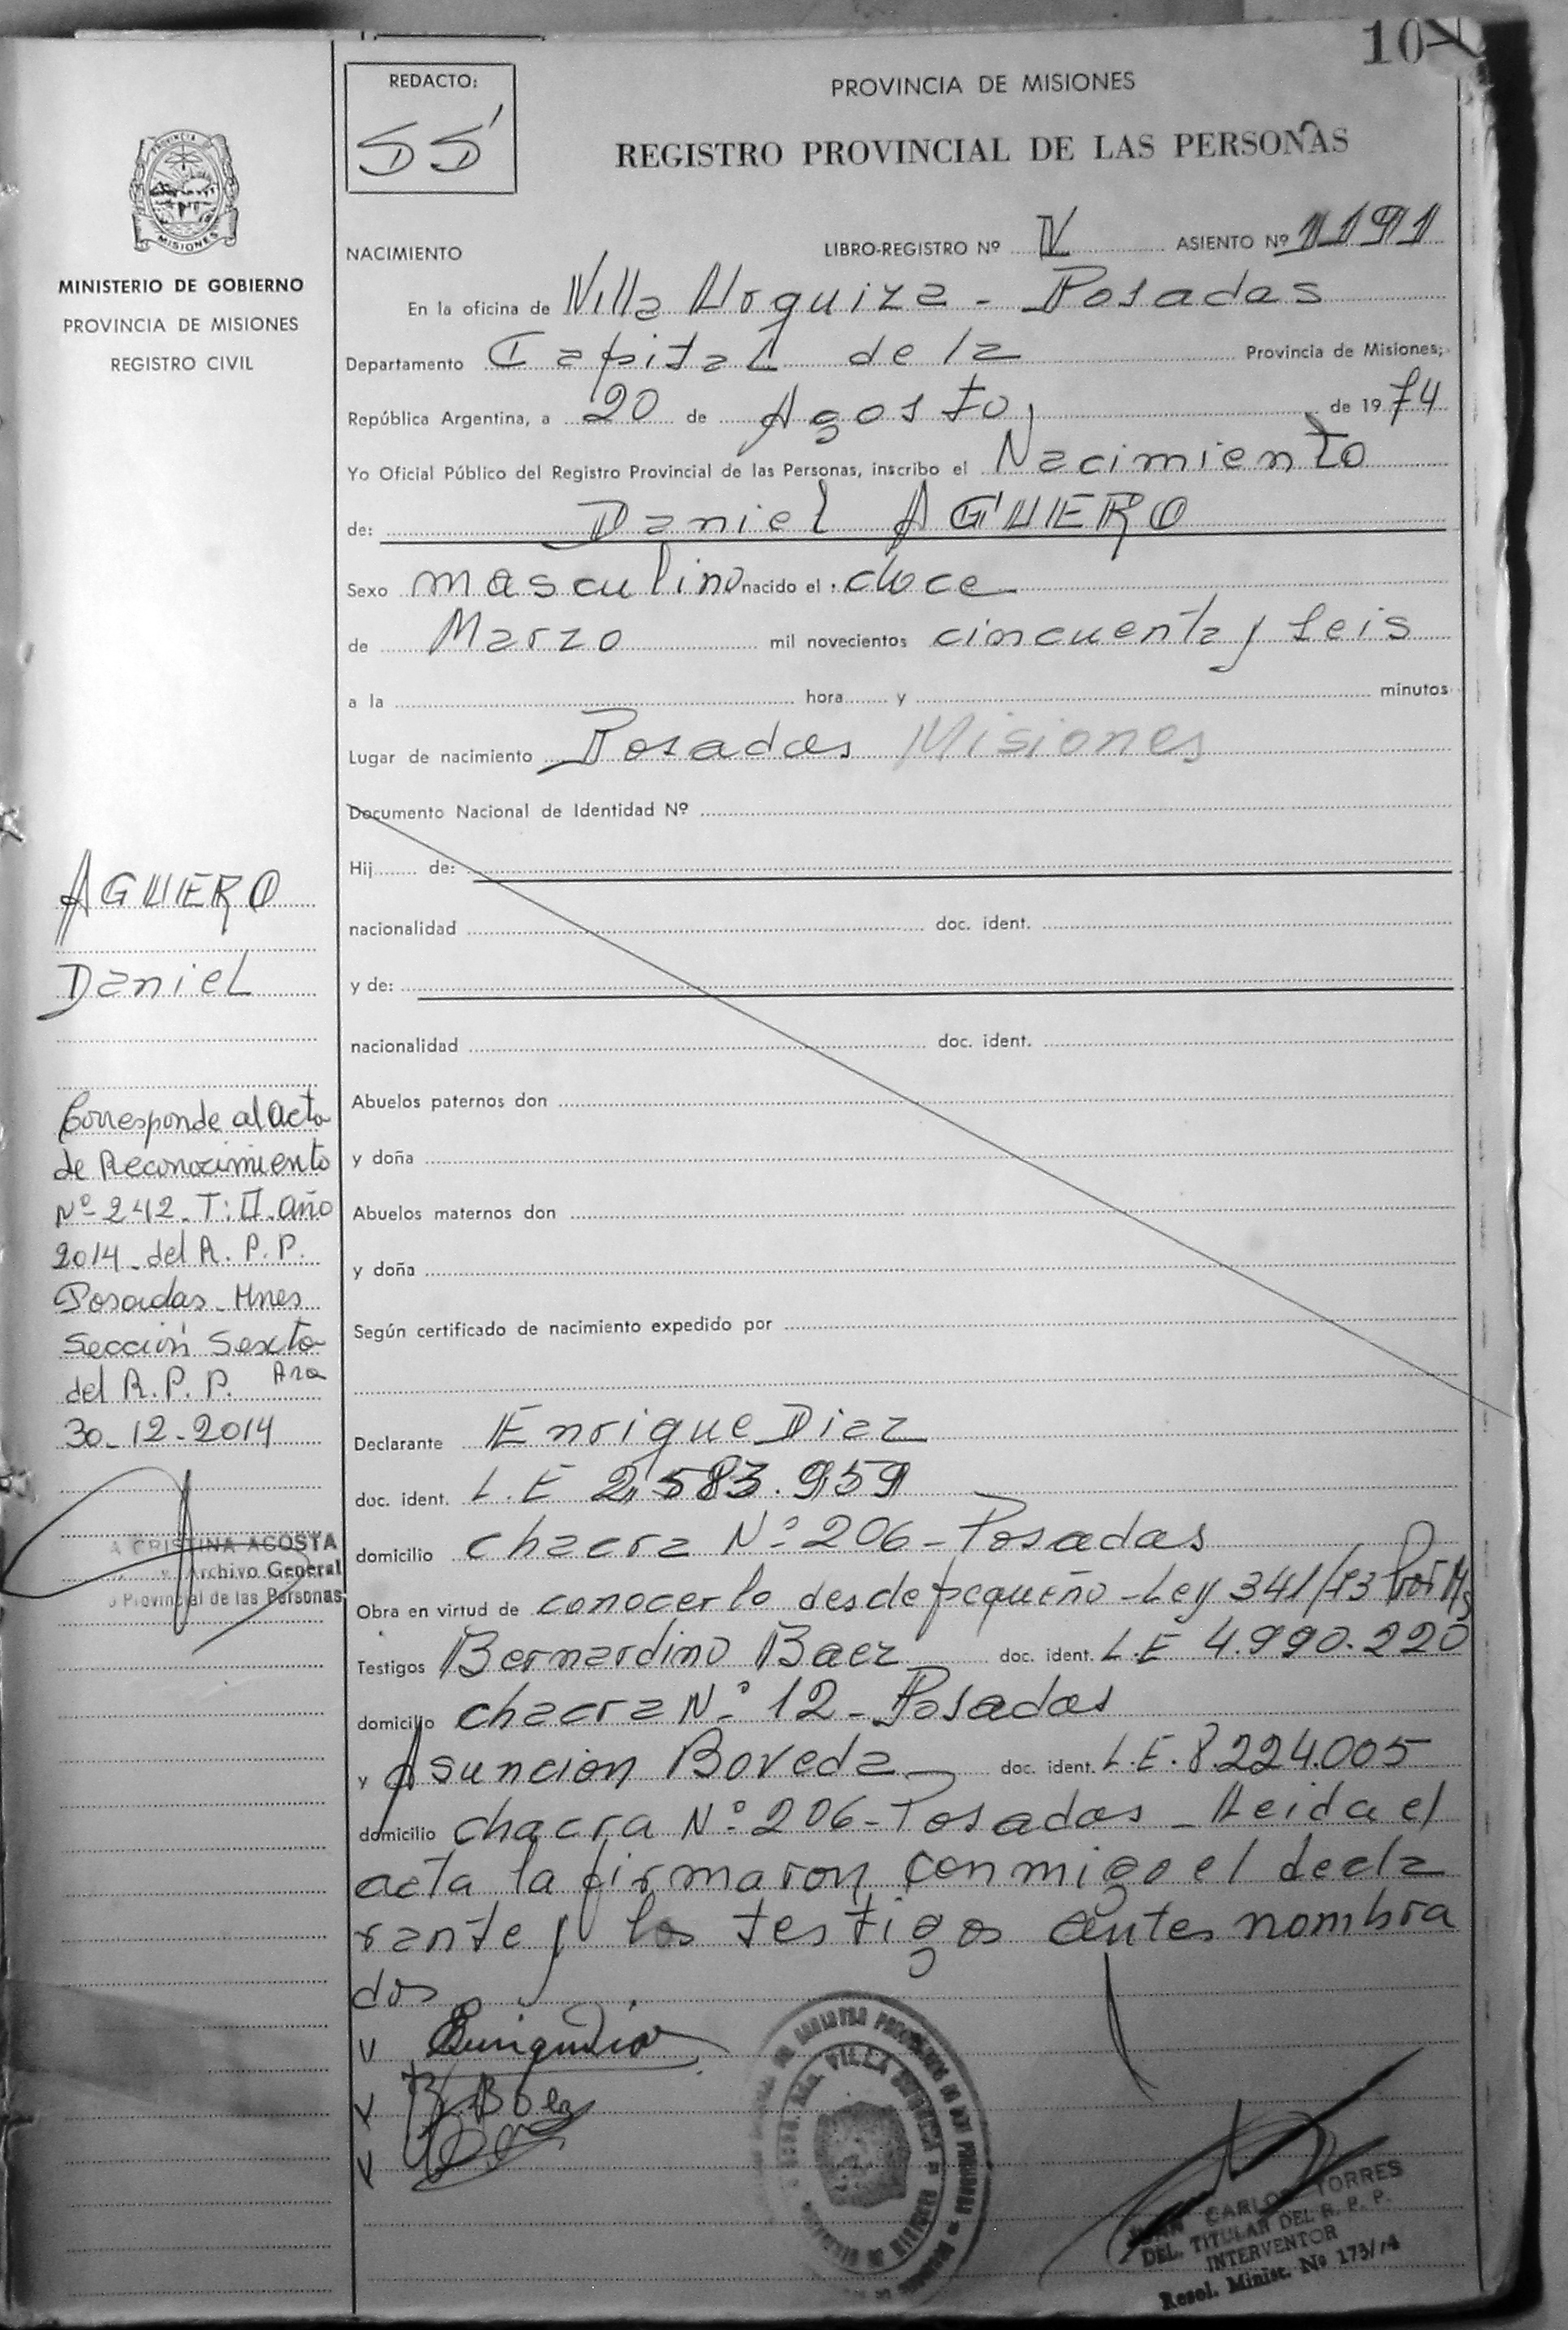 107
REDACTO:
55
PROVINCIA DE MISIONES
REGISTRO PROVINCIAL DE LAS PERSONAS
MISIONES
MINISTERIO DE GOBIERNO
PROVINCIA DE MISIONES
REGISTRO CIVIL
NACIMIENTO LIBRO-REGISTRO Nº V ASIENTO Nº 1191
En la oficina de Villa Urquiza - Posadas
Departamento Capital de la Provincia de Misiones;
República Argentina, a 20 de Agosto, de 1974
Yo Oficial Público del Registro Provincial de las Personas, inscribo el Nacimiento
de: Daniel AGUERO
Sexo masculino nacido el doce
de Marzo mil novecientos cincuenta y seis
a la hora y minutos
Lugar de nacimiento Posadas Misiones
Documento Nacional de Identidad Nº
Hij de:
nacionalidad doc. ident.
y de:
nacionalidad doc. ident.
Abuelos paternos don
y doña
Abuelos maternos don
y doña
Según certificado de nacimiento expedido por
Declarante Enrique Diaz
doc. ident. L.E 2.583.959
domicilio chacra Nº 206 - Posadas
Obra en virtud de conocerlo desde pequeño - Ley 341/73
Testigos Bernardino Baez doc. ident. L.E 4.990.220
domicilio chacra Nº 12 - Posadas
y Asuncion Boveda doc. ident. L.E. 8.224.005
domicilio chacra Nº 206 - Posadas - Leida el
acta la firmaron conmigo el decla
rante y los testigos antes nombra
dos
AGUERO
Daniel
Corresponde al acta
de Reconocimiento
Nº 242 - T: II - año
2014 - del R. P. P.
Posadas - Mnes
Sección Sexta
del R. P. P.
30-12-2014
A CRISTINA ACOSTA
Archivo General
Provincial de las Personas
B. Báez
VILLA URQUIZA
JUAN CARLOS TORRES
DEL. TITULAR DEL R. P. P.
INTERVENTOR
Resol. Minist. Nº 173/74